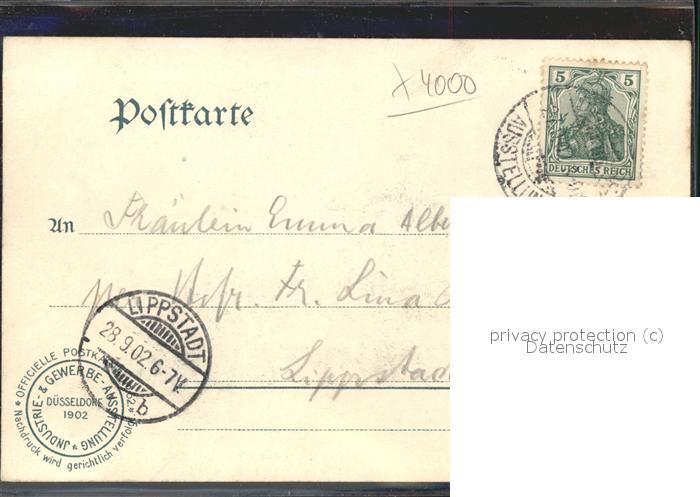 x 4000
5 5
DEUTSCHES REICH
AUSSTELLUN
Postkarte
An Fräulein Emma Albe
per Adr. Fr. Lina
Lippstadt
LIPPSTADT
28.9.02.6-7V.
b
* OFFICIELLE POSTKA
02 *
JNDUSTRIE- & GEWERBE-AUSSTELLUNG *
DÜSSELDORF
1902
Nachdruck wird gerichtlich verfolg
privacy protection (c)
Datenschutz